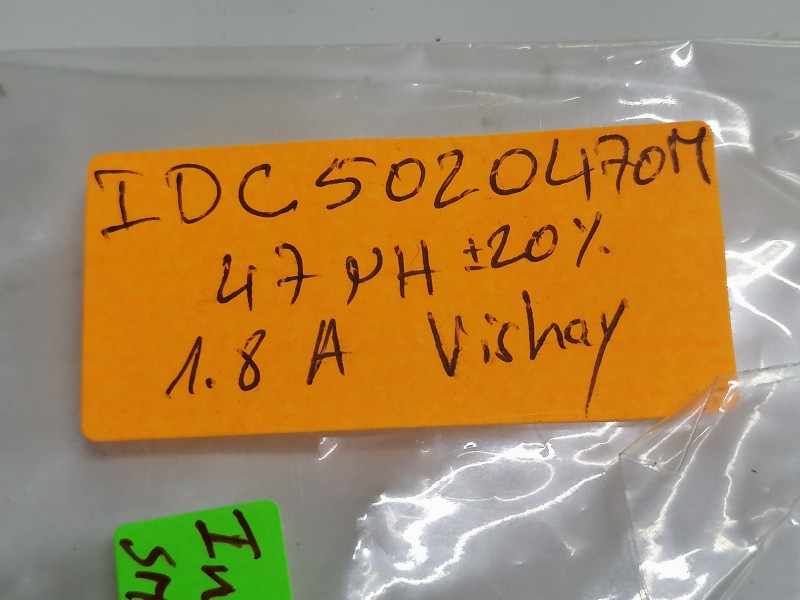 IDC5020470M
47 µH ±20%
1.8 A Vishay
In
SM